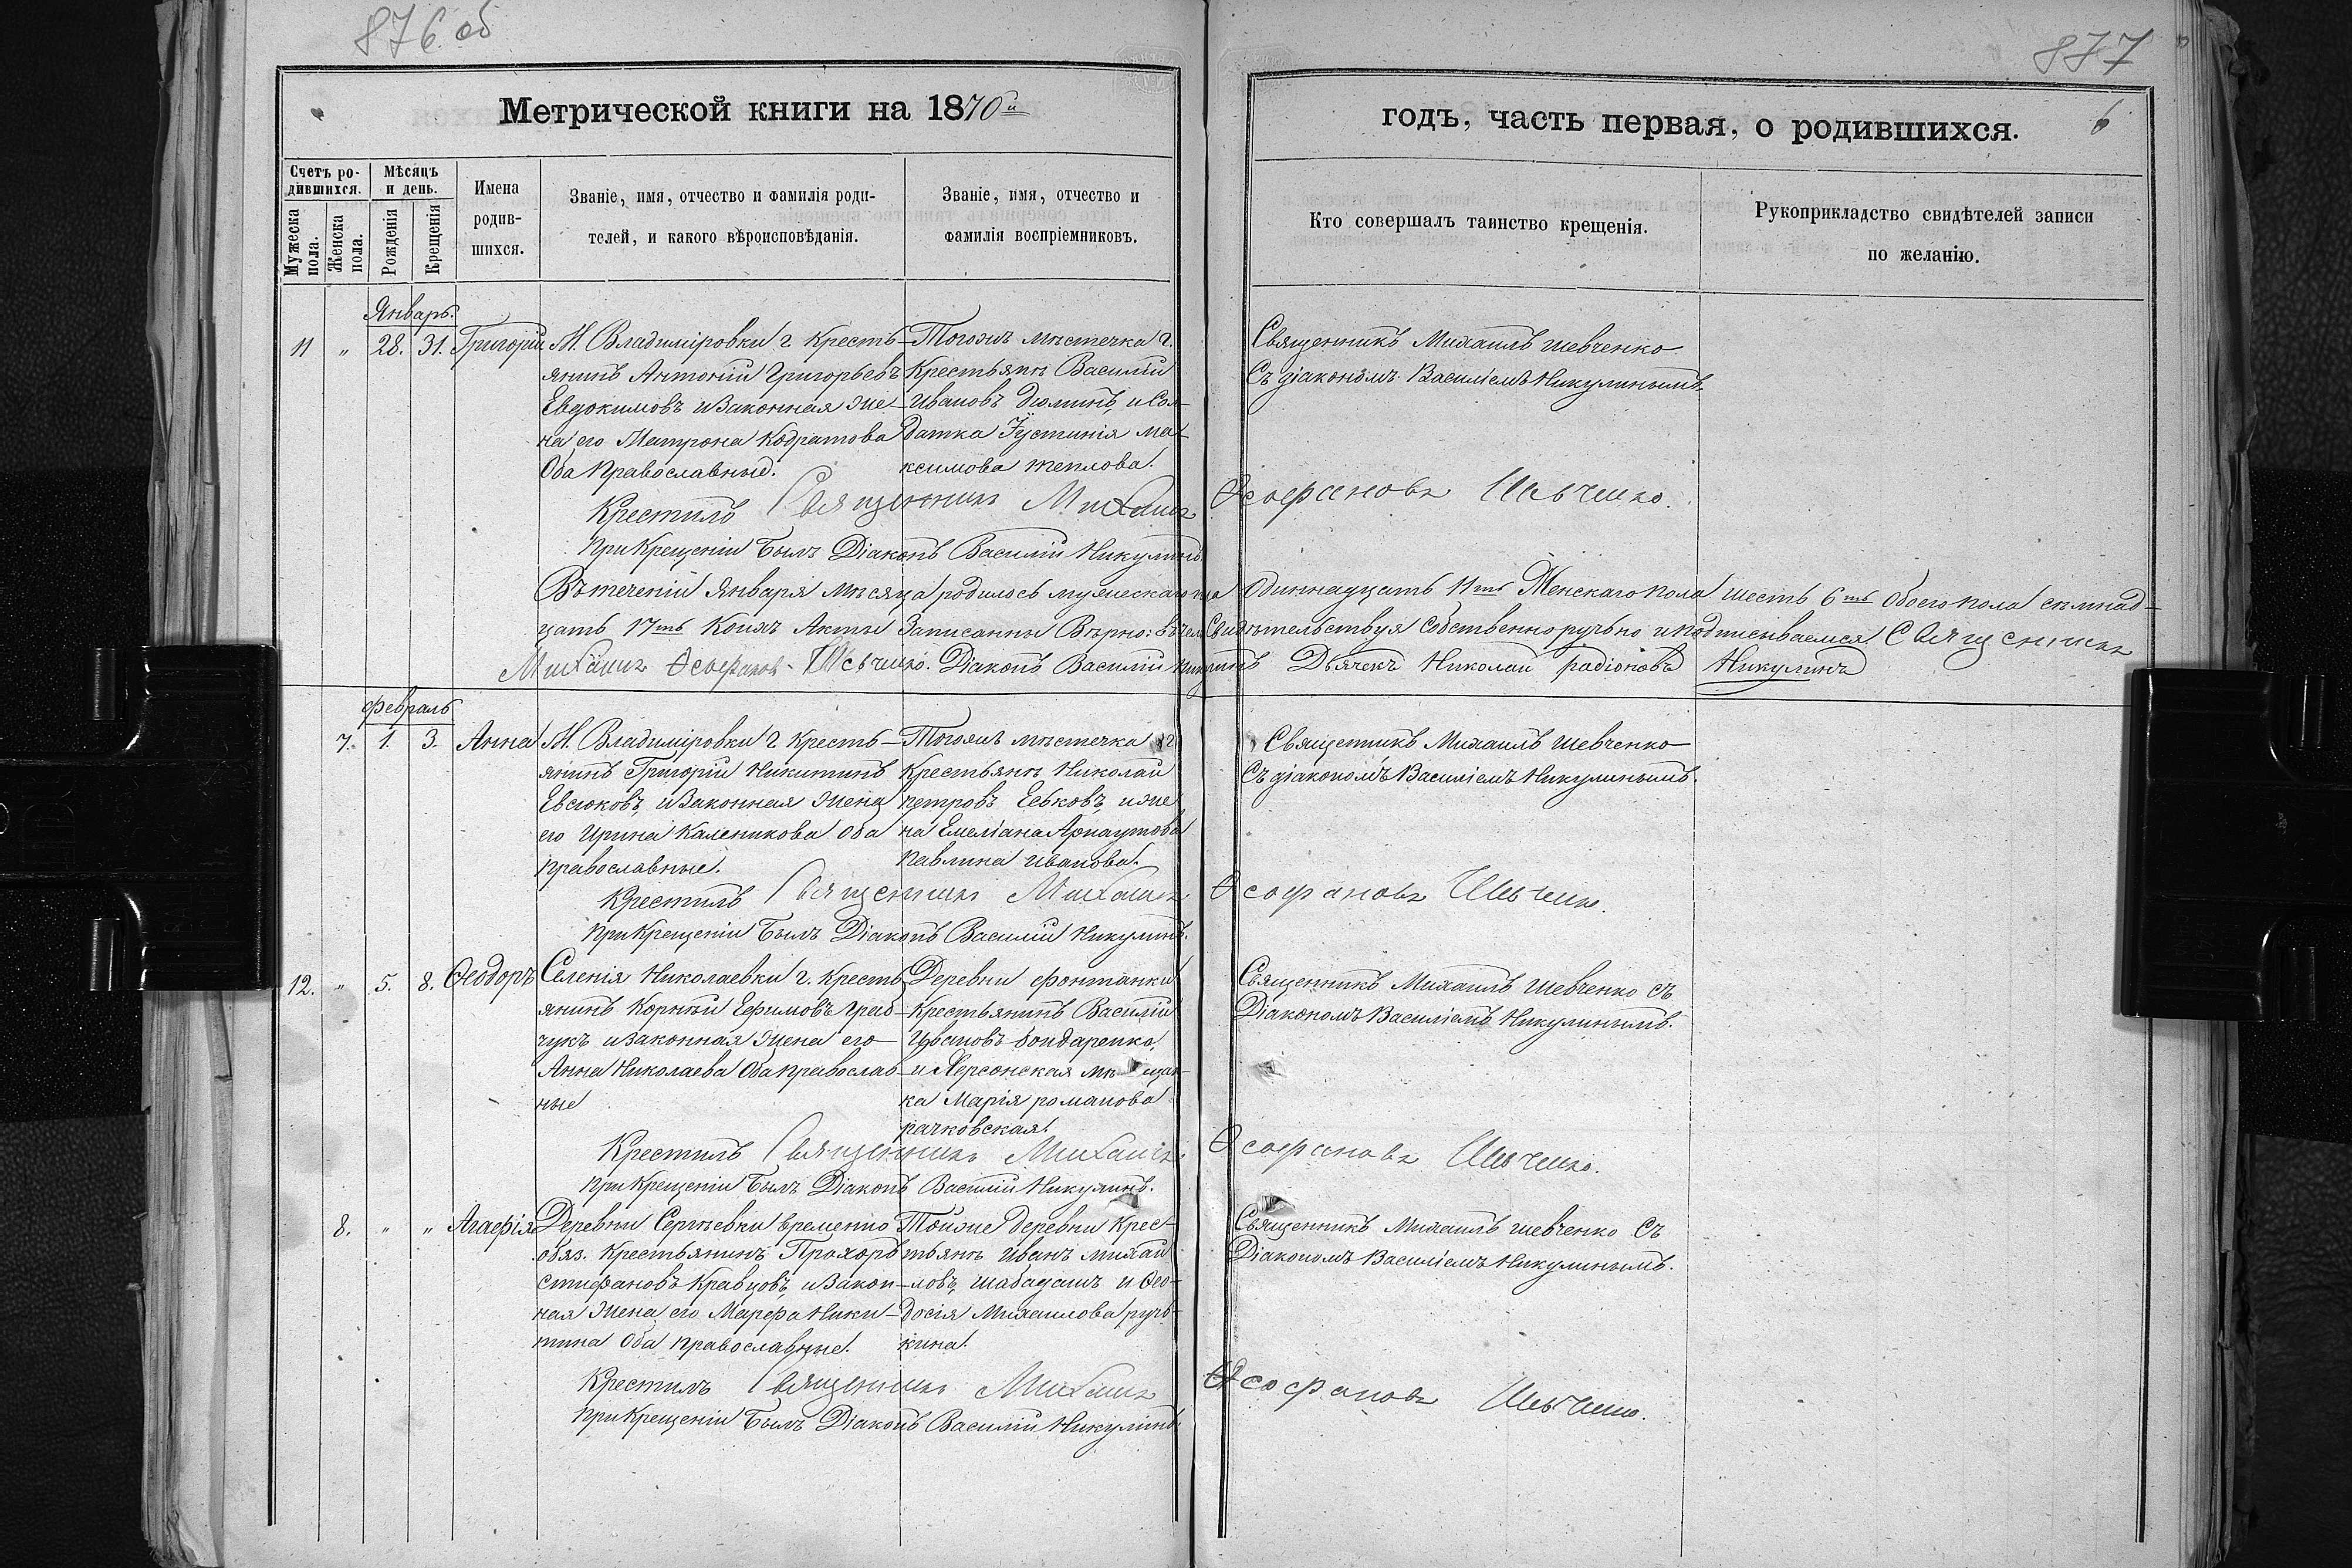 876 об
877
Метрической книги на 1870й
годъ, часть первая, о родившихся.
6
Счетъ ро-
дившихся.
Мужеска пола.
Женска пола.
Мѣсяцъ
и день.
Рожденія
Крещенія
Имена
родив-
шихся.
Званіе, имя, отчество и фамилія роди-
телей, и какого вѣроисповѣданія.
Званіе, имя, отчество и
фамилія воспріемниковъ.
Кто совершалъ таинство крещенія.
Рукоприкладство свидѣтелей записи
по желанію.
Январь.
11 " 28. 31. Григорій
М. Владиміровки г. Кресть-
янинъ Антоній Григорьевъ
Евдокимовъ и Законная же-
на его Матрона Кодратова
Оба Православные.
Тогожъ мѣстечка г.
Крестьянъ Василій
Ивановъ Дюминъ, и Сол-
датка Іустинія Ма-
ксимова теплова.
Священникъ Михаилъ Шевченко
Съ діакономъ Василіемъ Никулинымъ.
Крестилъ Священникъ Михаилъ Ѳеофановъ Шевченко.
При Крещеніи Былъ Діаконъ Василій Никулинъ.
Въ теченіи Января мѣсяца родилось мужескаго Одиннадцать 11ть Женскаго пола шесть 6ть Обоего пола семнад-
цать 17ть Коихъ Акты Записанны Вѣрно: въ чем Свидѣтельствуя Собственноручно и подписываемся Священникъ
Михаилъ Ѳеофанов. Шевченко. Діаконъ Василій Никулинъ Дьячекъ Николай Радіоновъ Никулинъ
Февраль
7. 1. 3. Анна
М. Владиміровки г. Кресть-
янинъ Григорій Никитинъ
Евсюковъ, и Законная Жена
его Ирина Каленикова Оба
православные.
Тогожъ мѣстечка г.
Крестьянъ Николай
Петровъ Еськовъ, и же
на Емеліана Арнаутова
Павлина Иванова.
Священникъ Михаилъ Шевченко
Съ діакономъ Василіемъ Никулинымъ.
Крестилъ Священникъ Михаилъ Ѳеофановъ Шевченко.
При Крещеніи Былъ Діаконъ Василій Никулинъ.
12. " 5. 8. Ѳеодоръ
Селенія Николаевки г. Кресть
янинъ Корнѣй Ефимовъ Граб-
чукъ и законная Жена его
Анна Николаева Оба православ-
ные
Деревни Фонтанки
Крестьянинъ Василій
Ивановъ Бондаренко,
и Херсонская мѣщан-
ка Марія романова
рачковская.
Священникъ Михаилъ Шевченко съ
Діакономъ Василіемъ Никулинымъ.
Крестилъ Священникъ Михаилъ Ѳеофановъ Шевченко.
При Крещеніи Былъ Діаконъ Василій Никулинъ.
8. " " Агафія
Деревни Сергѣевки временно
обяз. Крестьянинъ Прохоръ
Стифановъ Кравцовъ, и Закон-
ная Жена его Марфа Ники-
тина Оба православные.
Тойже деревни Крес-
тьянъ Иванъ Михай
ловъ, шабадашъ и Ѳео-
досія Михаилова ручь-
кина.
Священникъ Михаилъ Шевченко Съ
Діакономъ Василіемъ Никулинымъ.
Крестилъ Священникъ Михаилъ Ѳеофановъ Шевченко.
При Крещеніи Былъ Діаконъ Василій Никулинъ